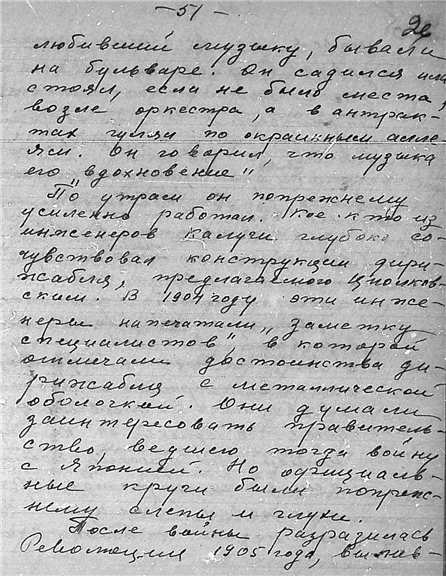 - 51 -
26
любивший музыку, бывали
на бульваре. Он садился или
стоял, если не было места
возле оркестра, а в антрак-
тах гулял по окраинным алле-
ям. Он говорил, что музыка
его вдохновение"
По утрам он попрежнему
усиленно работал. Кое-кто из
инженеров Калуги глубоко со-
чувствовал конструкции дири-
жабля, предлагаемого Циолков-
ским. В 1904 году эти инже-
неры напечатали „Заметку
специалистов" в которой
отмечали достоинства ди-
рижабля с металлической
оболочкой. Они думали
заинтересовать правитель-
ство, ведшего тогда войну
с Японией. Но официаль-
ные круги были попреж-
нему слепы и глухи.
После войны разразилась
Революция 1905 года,